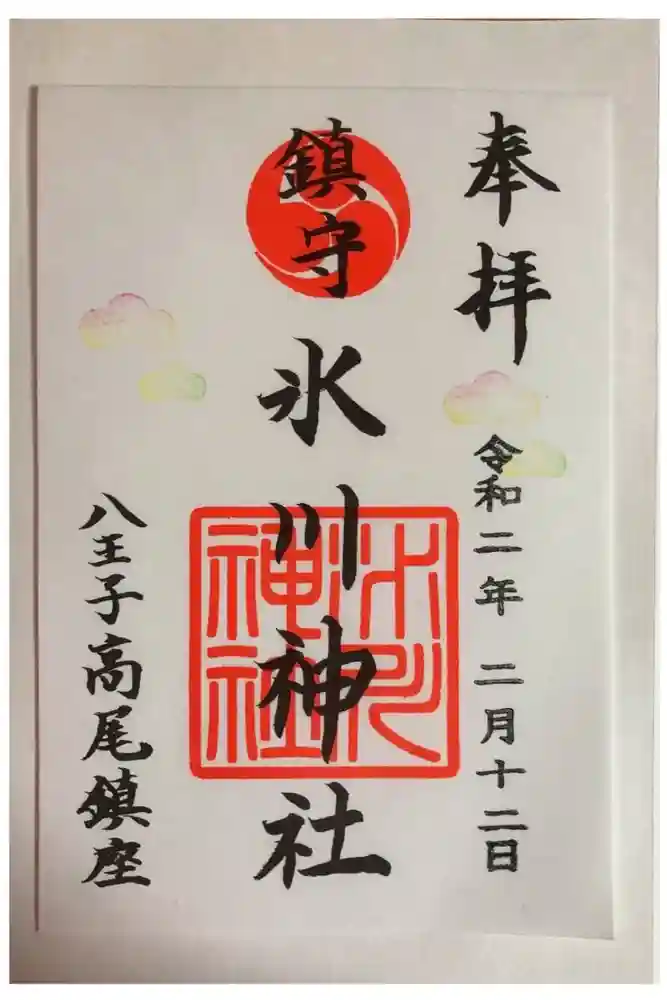 奉拝
令和二年 二月十二日
鎮守 氷川神社
氷川神社
八王子高尾鎮座